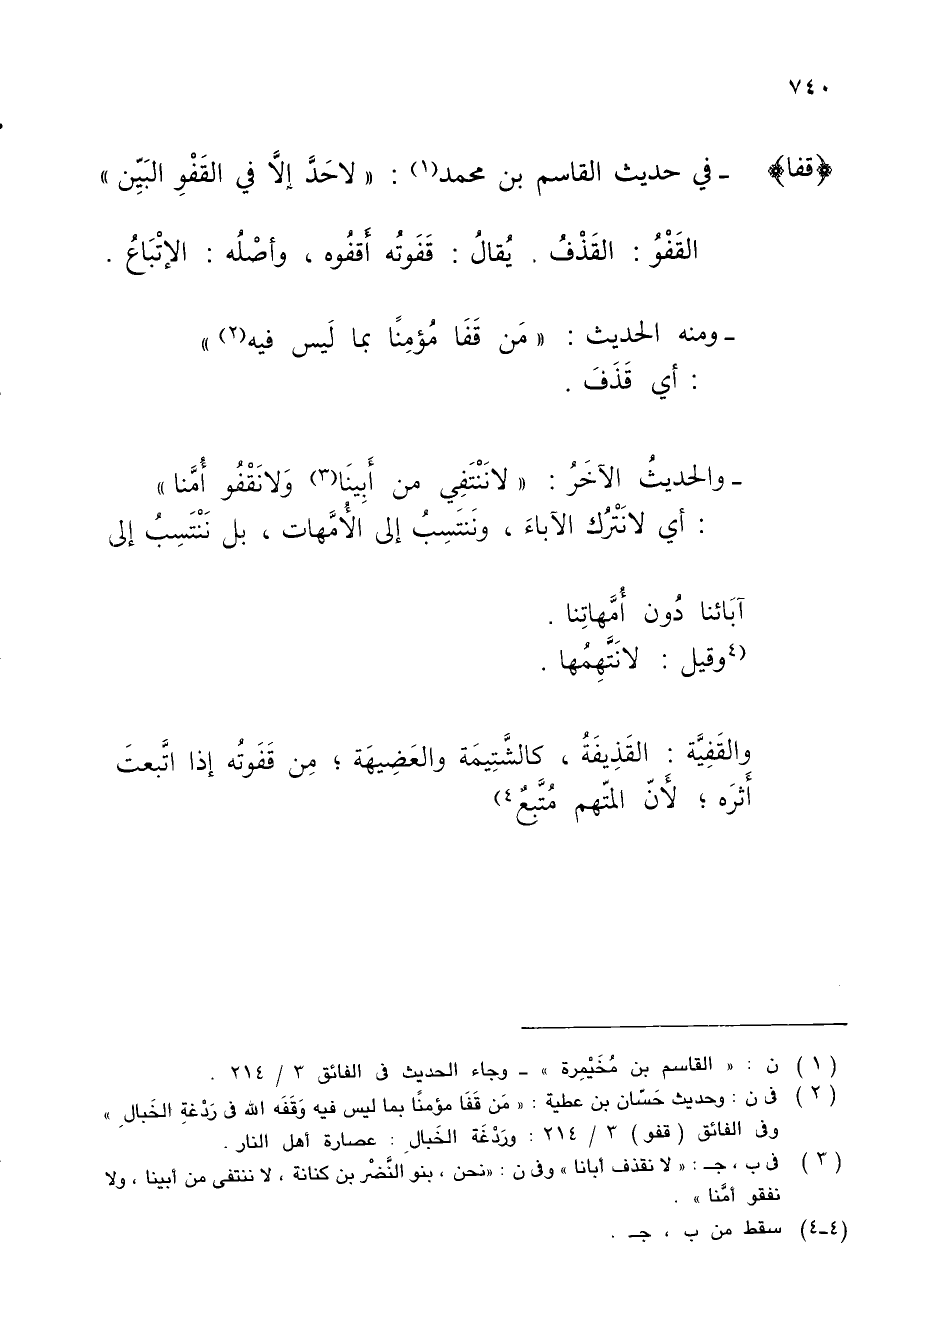 ٧٤٠
﴿قفا﴾ ـ في حديث القاسم بن محمد(١) : « لاحَدَّ إلَّا في القَفْوِ البَيِّن »
القَفْوُ : القَذْفُ . يُقالُ : قَفَوتُه أَقفُوه ، وأصْلُه : الإتْبَاعُ .
ـ ومنه الحديث : « مَن قَفَا مُؤمِنًا بما لَيس فيه(٢) »
: أي قَذَفَ .
ـ والحديثُ الآخَرُ : « لانَنْتَفِي من أَبِينَا(٣) وَلانَقْفُو أُمَّنا »
: أي لانَتْرُك الآباءَ ، ونَنتَسِبُ إلى الأُمَّهات ، بل نَنْتَسِبُ إلى
آبَائنا دُون أُمَّهاتِنا .
(٤وقيل : لانَتَّهِمُها .
والقَفِيَّة : القَذِيفَةُ ، كالشَّتِيمَة والعَضِيهَة ؛ مِن قَفَوتُه إذا اتَّبعتَ
أَثرَه ؛ لأَنّ المتّهم مُتَّبِعٌ٤)
(١) ن : « القاسم بن مُخَيْمِرة » ـ وجاء الحديث فى الفائق ٣ / ٢١٤ .
(٢) فى ن : وحديث حَسّان بن عطية : « مَن قَفَا مؤمنًا بما ليس فيه وَقَفَه الله فى رَدْغةِ الخَبالِ »
وفى الفائق ( قفو ) ٣ / ٢١٤ : ورَدْغَة الخَبالِ : عصارة أهل النار .
(٣) فى ب ، جـ : « لا نقذف أبانا » وفى ن : «نحن ، بنو النَّضْر بن كنانة ، لا ننتفى من أبينا ، ولا
نفقو أمَّنا » .
(٤ـ٤) سقط من ب ، جـ .